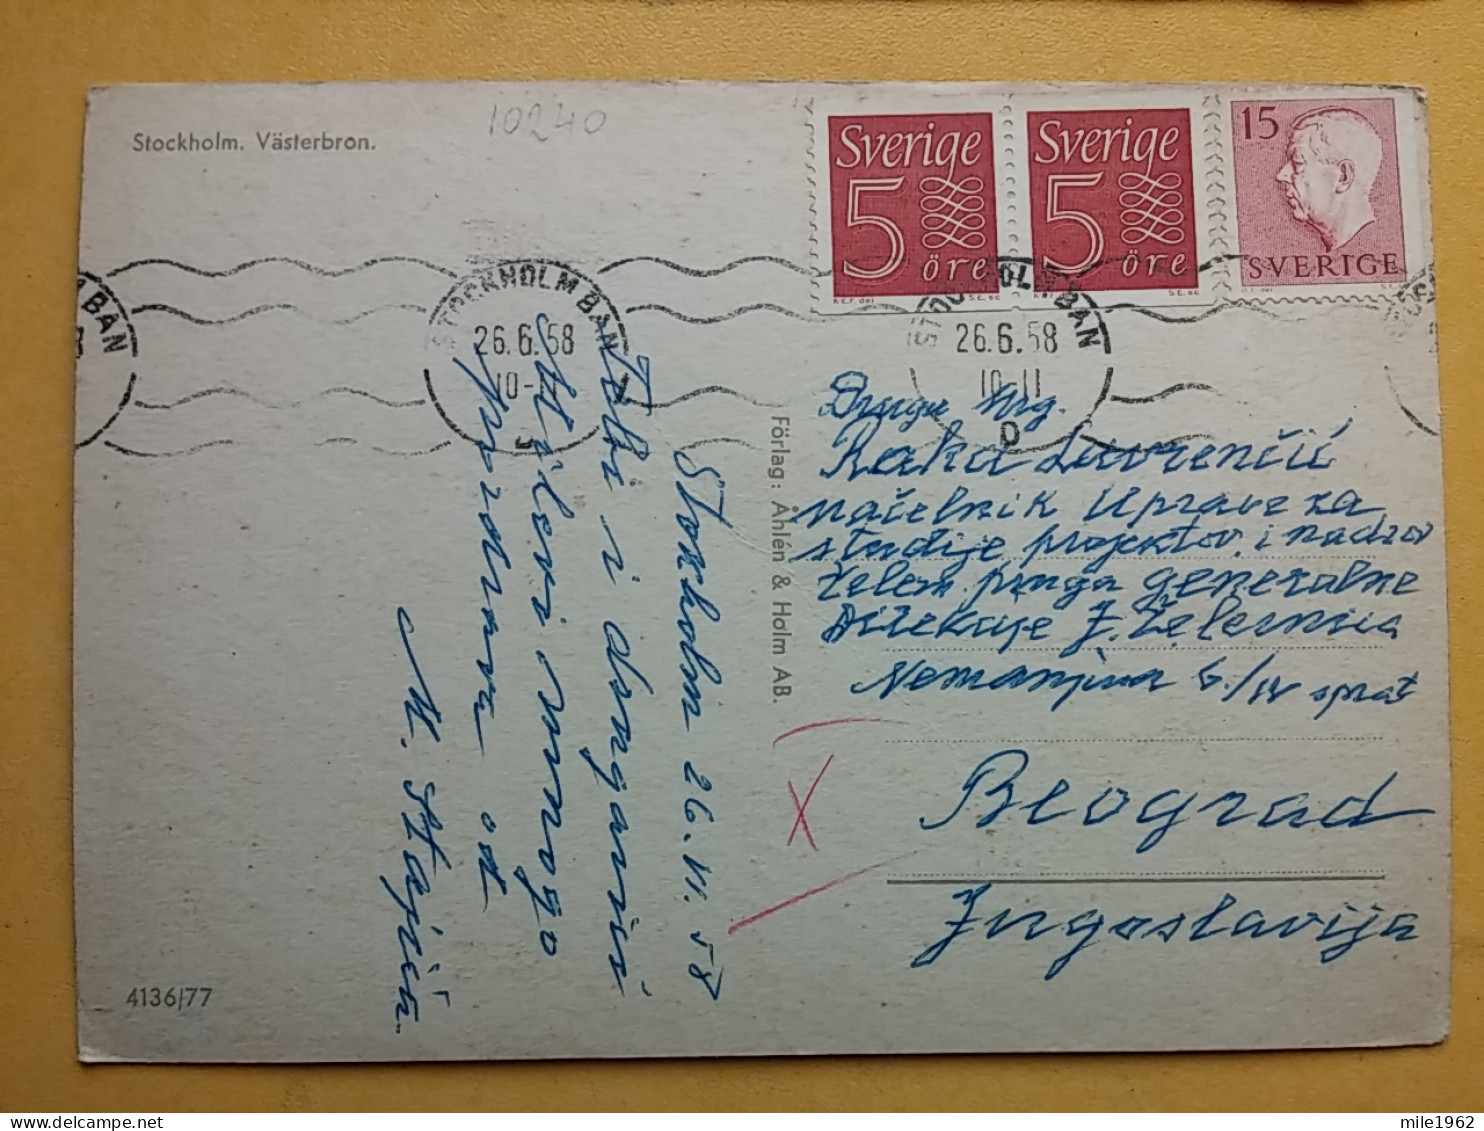 Stockholm. Västerbron.
10240
Sverige
5
öre
Sverige
5
öre
15
SVERIGE
STOCKHOLM BAN
26.6.58
10-11
STOCKHOLM BAN
26.6.58
10-11
D
Stokholm 26.VI.58
Tebi i drugarici
Milevi mnogo
pozdrava od
M. Stajić
Förlag: Åhlén & Holm AB.
Drug Ing.
Raka Lavrenčić
načelnik Uprave za
studije projektov. i nadzor
želem. pruga generalne
Direkcije J. Železnica
Nemanjina 6/IV sprat
Beograd
Jugoslavija
4136/77
mile1962